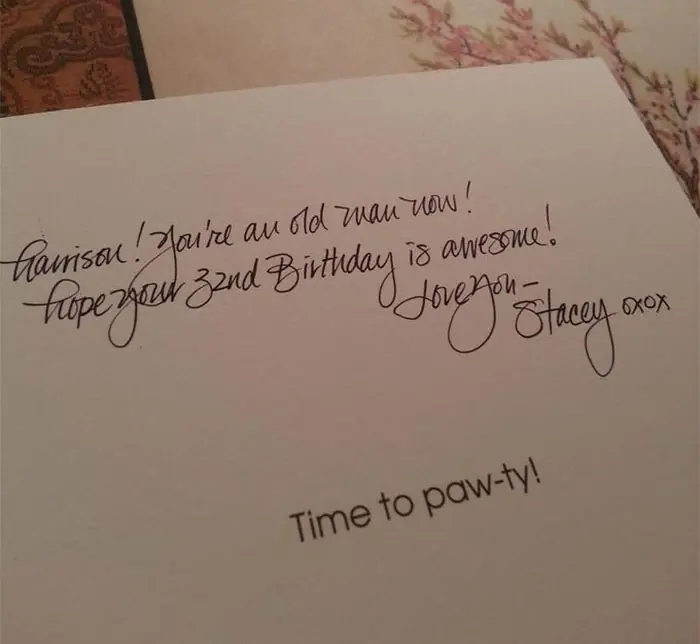 Harrison! You're an old man now!
hope your 32nd Birthday is awesome!
Love you-
Stacey oxox
Time to paw-ty!